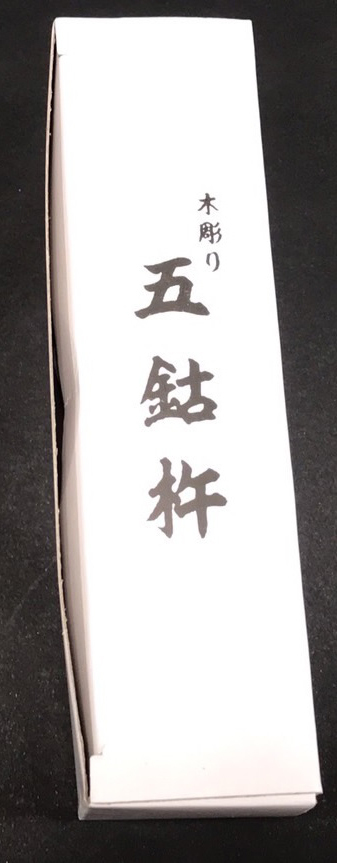 木彫り
五鈷杵